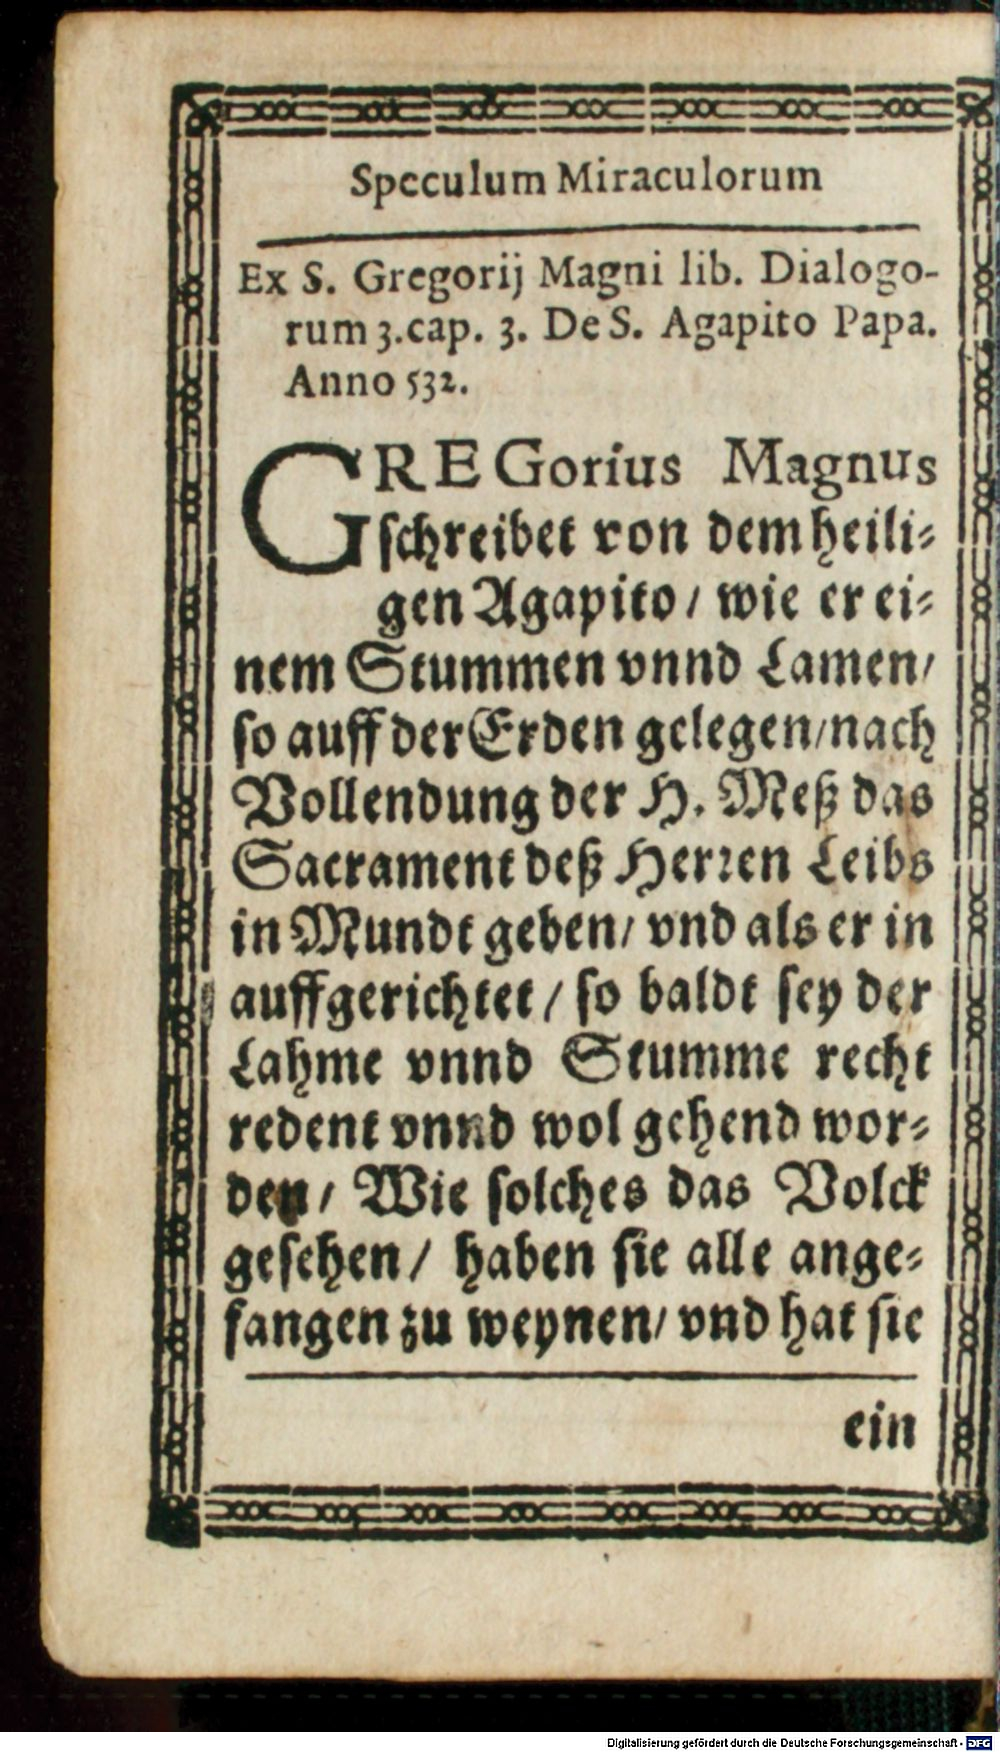 Speculum Miraculorum
Ex S. Gregorij Magni lib. Dialogo-
rum 3. cap. 3. De S. Agapito Papa.
Anno 532.
GREGorius Magnus
schreibet von dem heili-
gen Agapito/ wie er ei-
nem Stummen vnnd Lamen/
so auff der Erden gelegen/ nach
Vollendung der H. Meß das
Sacrament deß Herren Leibs
in Mundt geben/ vnd als er in
auffgerichtet/ so baldt sey der
Lahme vnnd Stumme recht
redent vnnd wol gehend wor-
den/ Wie solches das Volck
gesehen/ haben sie alle ange-
fangen zu weynen/ vnd hat sie
ein
Digitalisierung gefördert durch die Deutsche Forschungsgemeinschaft - DFG